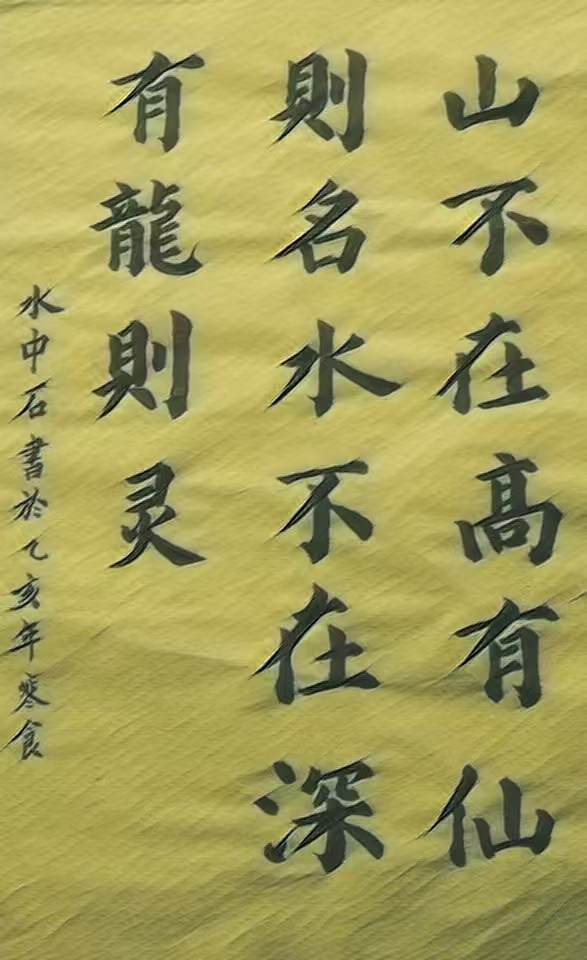 山不在高有仙
則名水不在深
有龍則灵
水中石書於乙亥年寒食